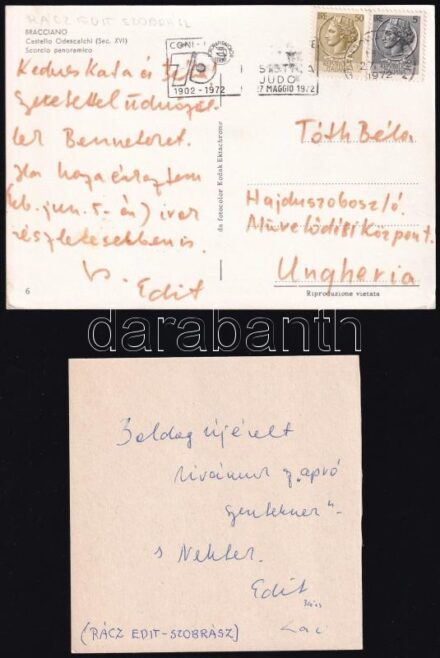 RÁCZ EDIT SZOBRÁSZ
BRACCIANO
Castello Odescalchi (Sec. XVI)
Scorcio panoramico
Kedves Kata és Béla
Szeretettel üdvözöl-
lek Benneteket.
Ha hazaérkeztem
jun. 5-én) írok
részletesebben is.
Edit
6
da fotocolor Kodak Ektachrome
CONI
70
1902 - 1972
JUDO
27 MAGGIO 1972
50
5
1972
Tóth Béla
Hajduszoboszló.
Művelődési Központ.
Ungheria
Riproduzione vietata
darabanth
Boldog újévet
kívánunk az „apró
szenteknek"
s Nektek.
Edit
Laci
(RÁCZ EDIT-SZOBRÁSZ)